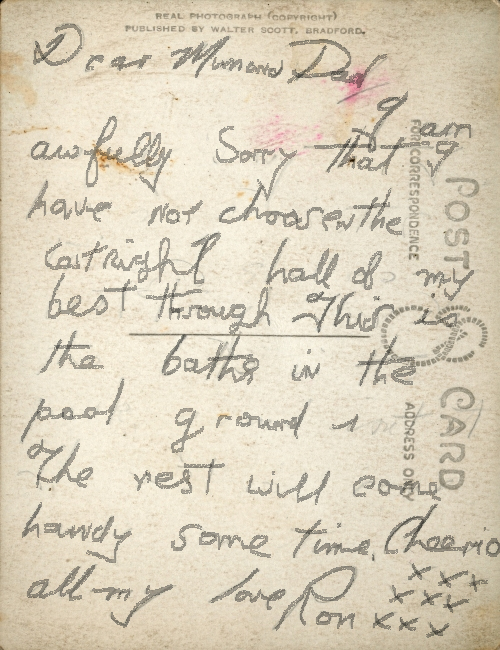 REAL PHOTOGRAPH (COPYRIGHT)
PUBLISHED BY WALTER SCOTT, BRADFORD.
Dear Mum and Dad
I am
awfully Sorry that I
have not choosen the
Cartright hall of my
best through This is
the baths in the
pool ground
The rest will come
handy some time. Cheerio
all my love Ron
xxx
xxx
xxx
POST CARD
FOR CORRESPONDENCE
ADDRESS ONLY